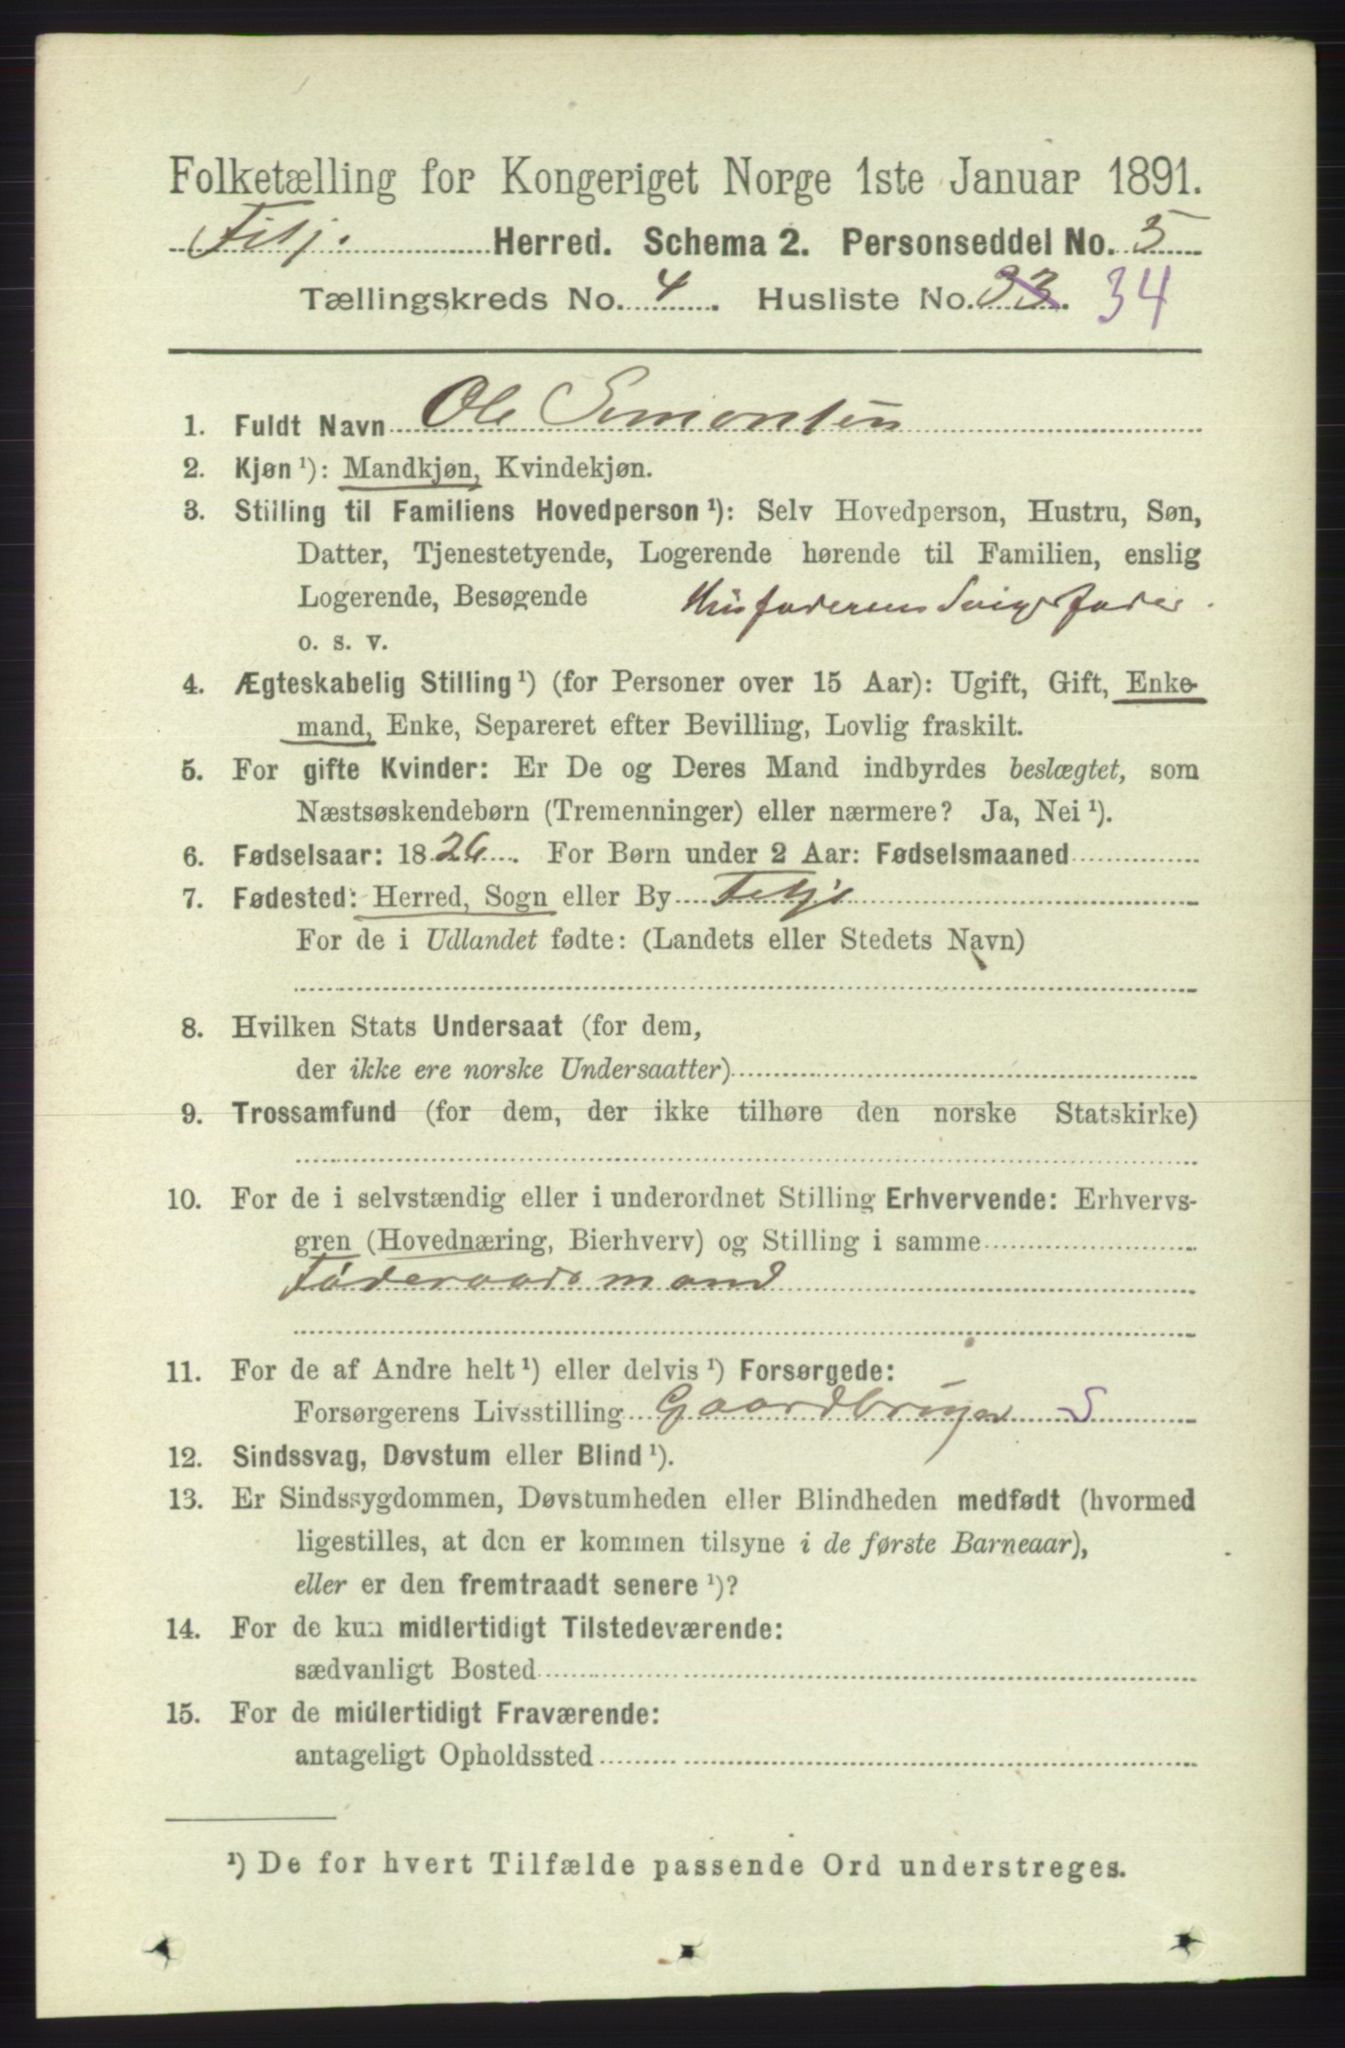 Folketælling for Kongeriget Norge 1ste Januar 1891.
Fitj. Herred. Schema 2. Personseddel No. 5
Tællingskreds No. 4. Husliste No. 33. 34
1. Fuldt Navn Ole Simonsen
2. Kjøn ¹): Mandkjøn, Kvindekjøn.
3. Stilling til Familiens Hovedperson ¹): Selv Hovedperson, Hustru, Søn,
Datter, Tjenestetyende, Logerende hørende til Familien, enslig
Logerende, Besøgende Husfaderens Svigefader.
o. s. v.
4. Ægteskabelig Stilling ¹) (for Personer over 15 Aar): Ugift, Gift, Enke-
mand, Enke, Separeret efter Bevilling, Lovlig fraskilt.
5. For gifte Kvinder: Er De og Deres Mand indbyrdes beslægtet, som
Næstsøskendebørn (Tremenninger) eller nærmere? Ja, Nei ¹).
6. Fødselsaar: 1826. For Børn under 2 Aar: Fødselsmaaned
7. Fødested: Herred, Sogn eller By Fitje
For de i Udlandet fødte: (Landets eller Stedets Navn)
8. Hvilken Stats Undersaat (for dem,
der ikke ere norske Undersaatter)
9. Trossamfund (for dem, der ikke tilhøre den norske Statskirke)
10. For de i selvstændig eller i underordnet Stilling Erhvervende: Erhvervs-
gren (Hovednæring, Bierhverv) og Stilling i samme
Føderaadsmand
11. For de af Andre helt ¹) eller delvis ¹) Forsørgede:
Forsørgerens Livsstilling Gaardbruger S
12. Sindssvag, Døvstum eller Blind ¹).
13. Er Sindssygdommen, Døvstumheden eller Blindheden medfødt (hvormed
ligestilles, at den er kommen tilsyne i de første Barneaar),
eller er den fremtraadt senere ¹)?
14. For de kun midlertidigt Tilstedeværende:
sædvanligt Bosted
15. For de midlertidigt Fraværende:
antageligt Opholdssted
¹) De for hvert Tilfælde passende Ord understreges.